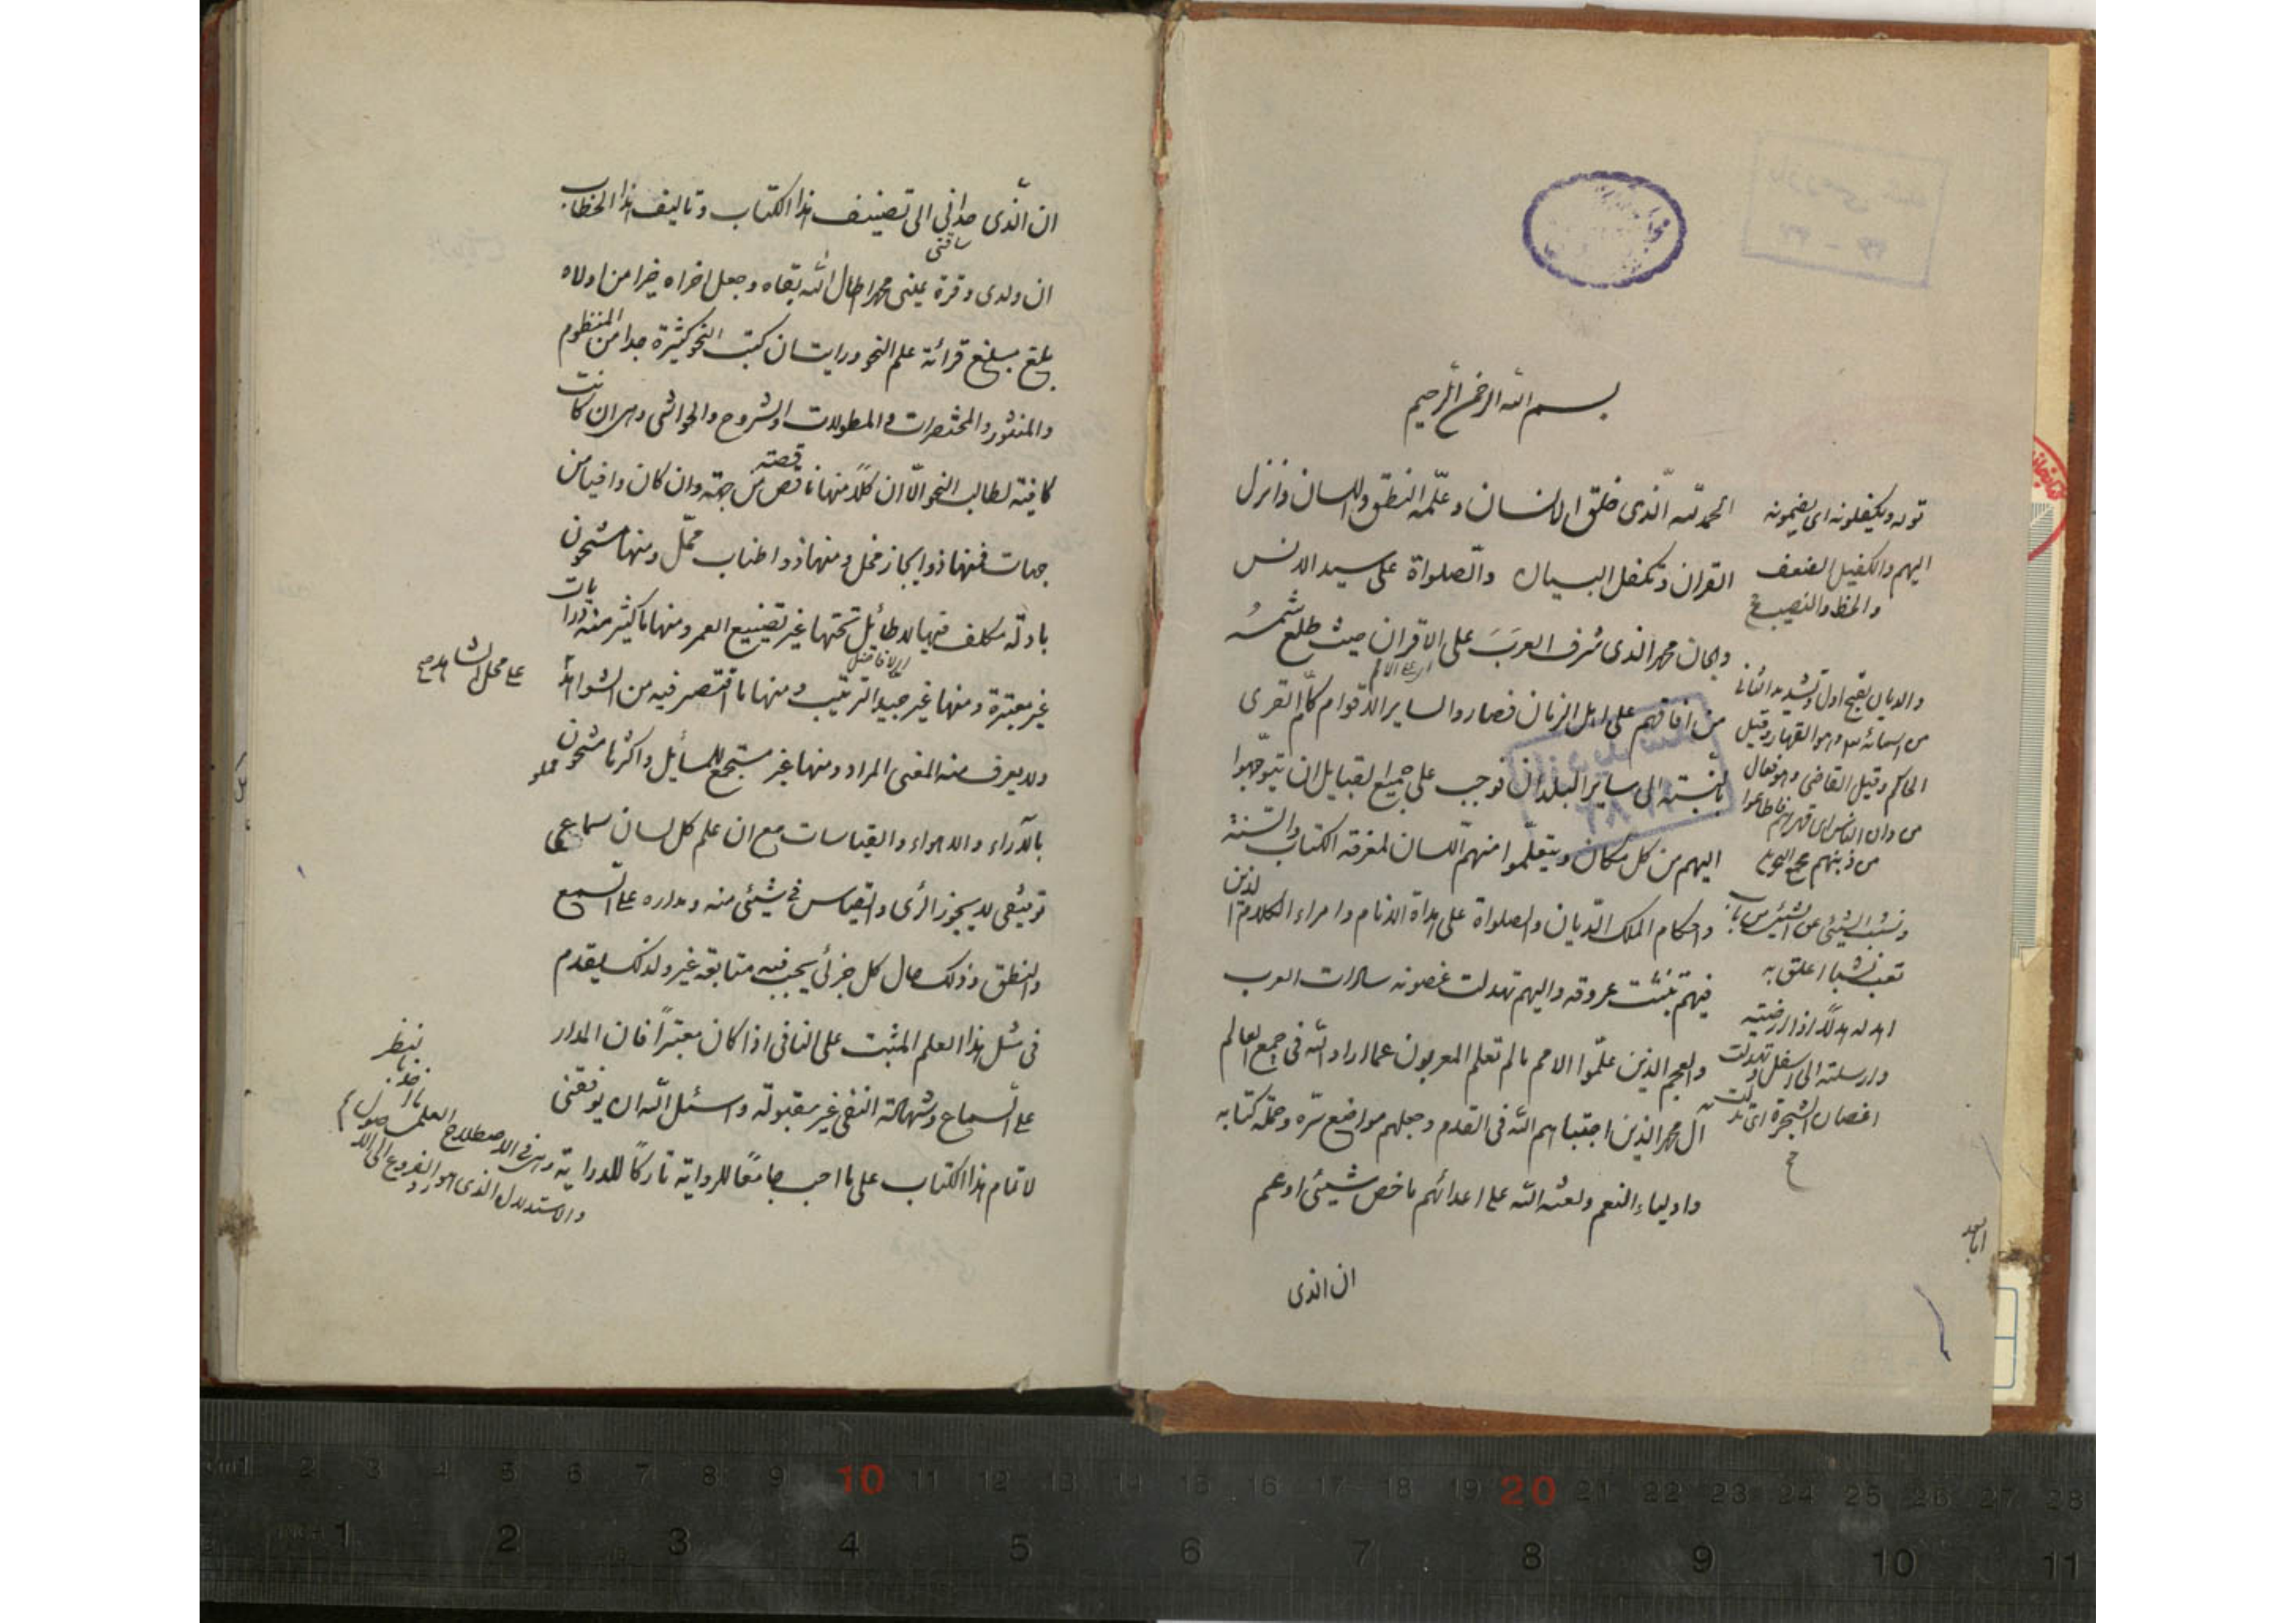 بسم الله الرحمن الرحیم
الحمد لله الّذی خلق الانسان و علّمه النطق واللسان وانزل
القران وتکفل البیان والصلواة علی سید الانس
والجان محمد الذی شرف العرب علی الاقران حیث طلع شمسه
من افاقهم علی اهل الزمان فصاروا لسایر الاقوام کامّ القری
بالنسبته الی سایر البلدان فوجب علی جمیع القبایل ان یتوجّهوا
الیهم من کل مکان ویتعلّموا منهم اللسان لمعرفه الکتاب والسّنة
واحکام الملک الدّیان والصلواة علی هداة الانام وامراء الکلام الذین
فیهم تنشّبت عروقه والیهم تهدلت غصونه سادات العرب
والعجم الذین علّموا الامم مالم تعلم المعربون عما اراد الله فی جمیع العالم
آل محمد الذین اجتباهم الله فی القدم وجعلهم مواضع سرّه وحملة کتابه
واولیاء النعم ولعنه الله علی اعدائهم ماخص شیئی اوعم
ان الذی
قوله ویکفلونه ای یضمونه
الیهم والکفیل الضعف
والحظ والنصیب
والدیان بفتح اول وتشدید الثانی
من اسمائه وهو القهار وقیل
الحاکم وقیل القاضی وهو فعال
من دان الناس ای قهرهم فاطاعوا
ونشب الشیئی فی الشیئی من باب
تعب نشبا اعلق به
اهدله هدلًا اذا ارخیته
وارسلته الی اسفل وتهدلت
اغصان الشجرة ای تدلت
امابعد
ان الّذی حدانی الی تصنیف هذا الکتاب وتالیف هذا الخطاب
ساقنی
ان ولدی وقرة عینی محمد اطال الله بقاه وجعل اخراه خیرا من اولاه
بلغ مبلغ قرائة علم النحو ورایت ان کتب النحو کثیرة جدا من المنظوم
والمنثور والمختصرات والمطولات والشروح والحواشی وهی ان کانت
کافیة لطالب النحو الّا ان کلًا منها ناقصة من جهة وان کان وافیا من
جهات فمنها ذو ایجاز مخل ومنها ذو اطناب مملّ ومنها مشحون
بادلّه مکلف فیها لاطائل تحتها غیر تضییع العمر ومنها ماکثیر منه روایات
غیر معتبرة ومنها غیر جید الترتیب ومنها ما اقتصر فیه من الشواهد
علی محل الشاهد
ولا یعرف منه المعنی المراد ومنها غیر مستجمع للمسایل واکثرها مشحون مملو
بالآراء والاهواء والقیاسات مع ان علم کل لسان سماعی
توقیفی لا یجوز الرّی والقیاس فی شیئی منه ومداره علی السمع
والنطق وذلک حال کل جزئی یجب فیه متابعة غیر ولذلک یقدم
فی مثل هذا العلم المثبت علی النافی اذا کان معتبرًا فان المدار
علی السماع وشهادة النفی غیر مقبولة واسئل الله ان یوفقنی
لاتمام هذا الکتاب علی ما احب جامعًا للروایة تارکًا للدرایة
وهی فی الاصطلاح العلم
والاستدلال الذی هو رد الفروع الی